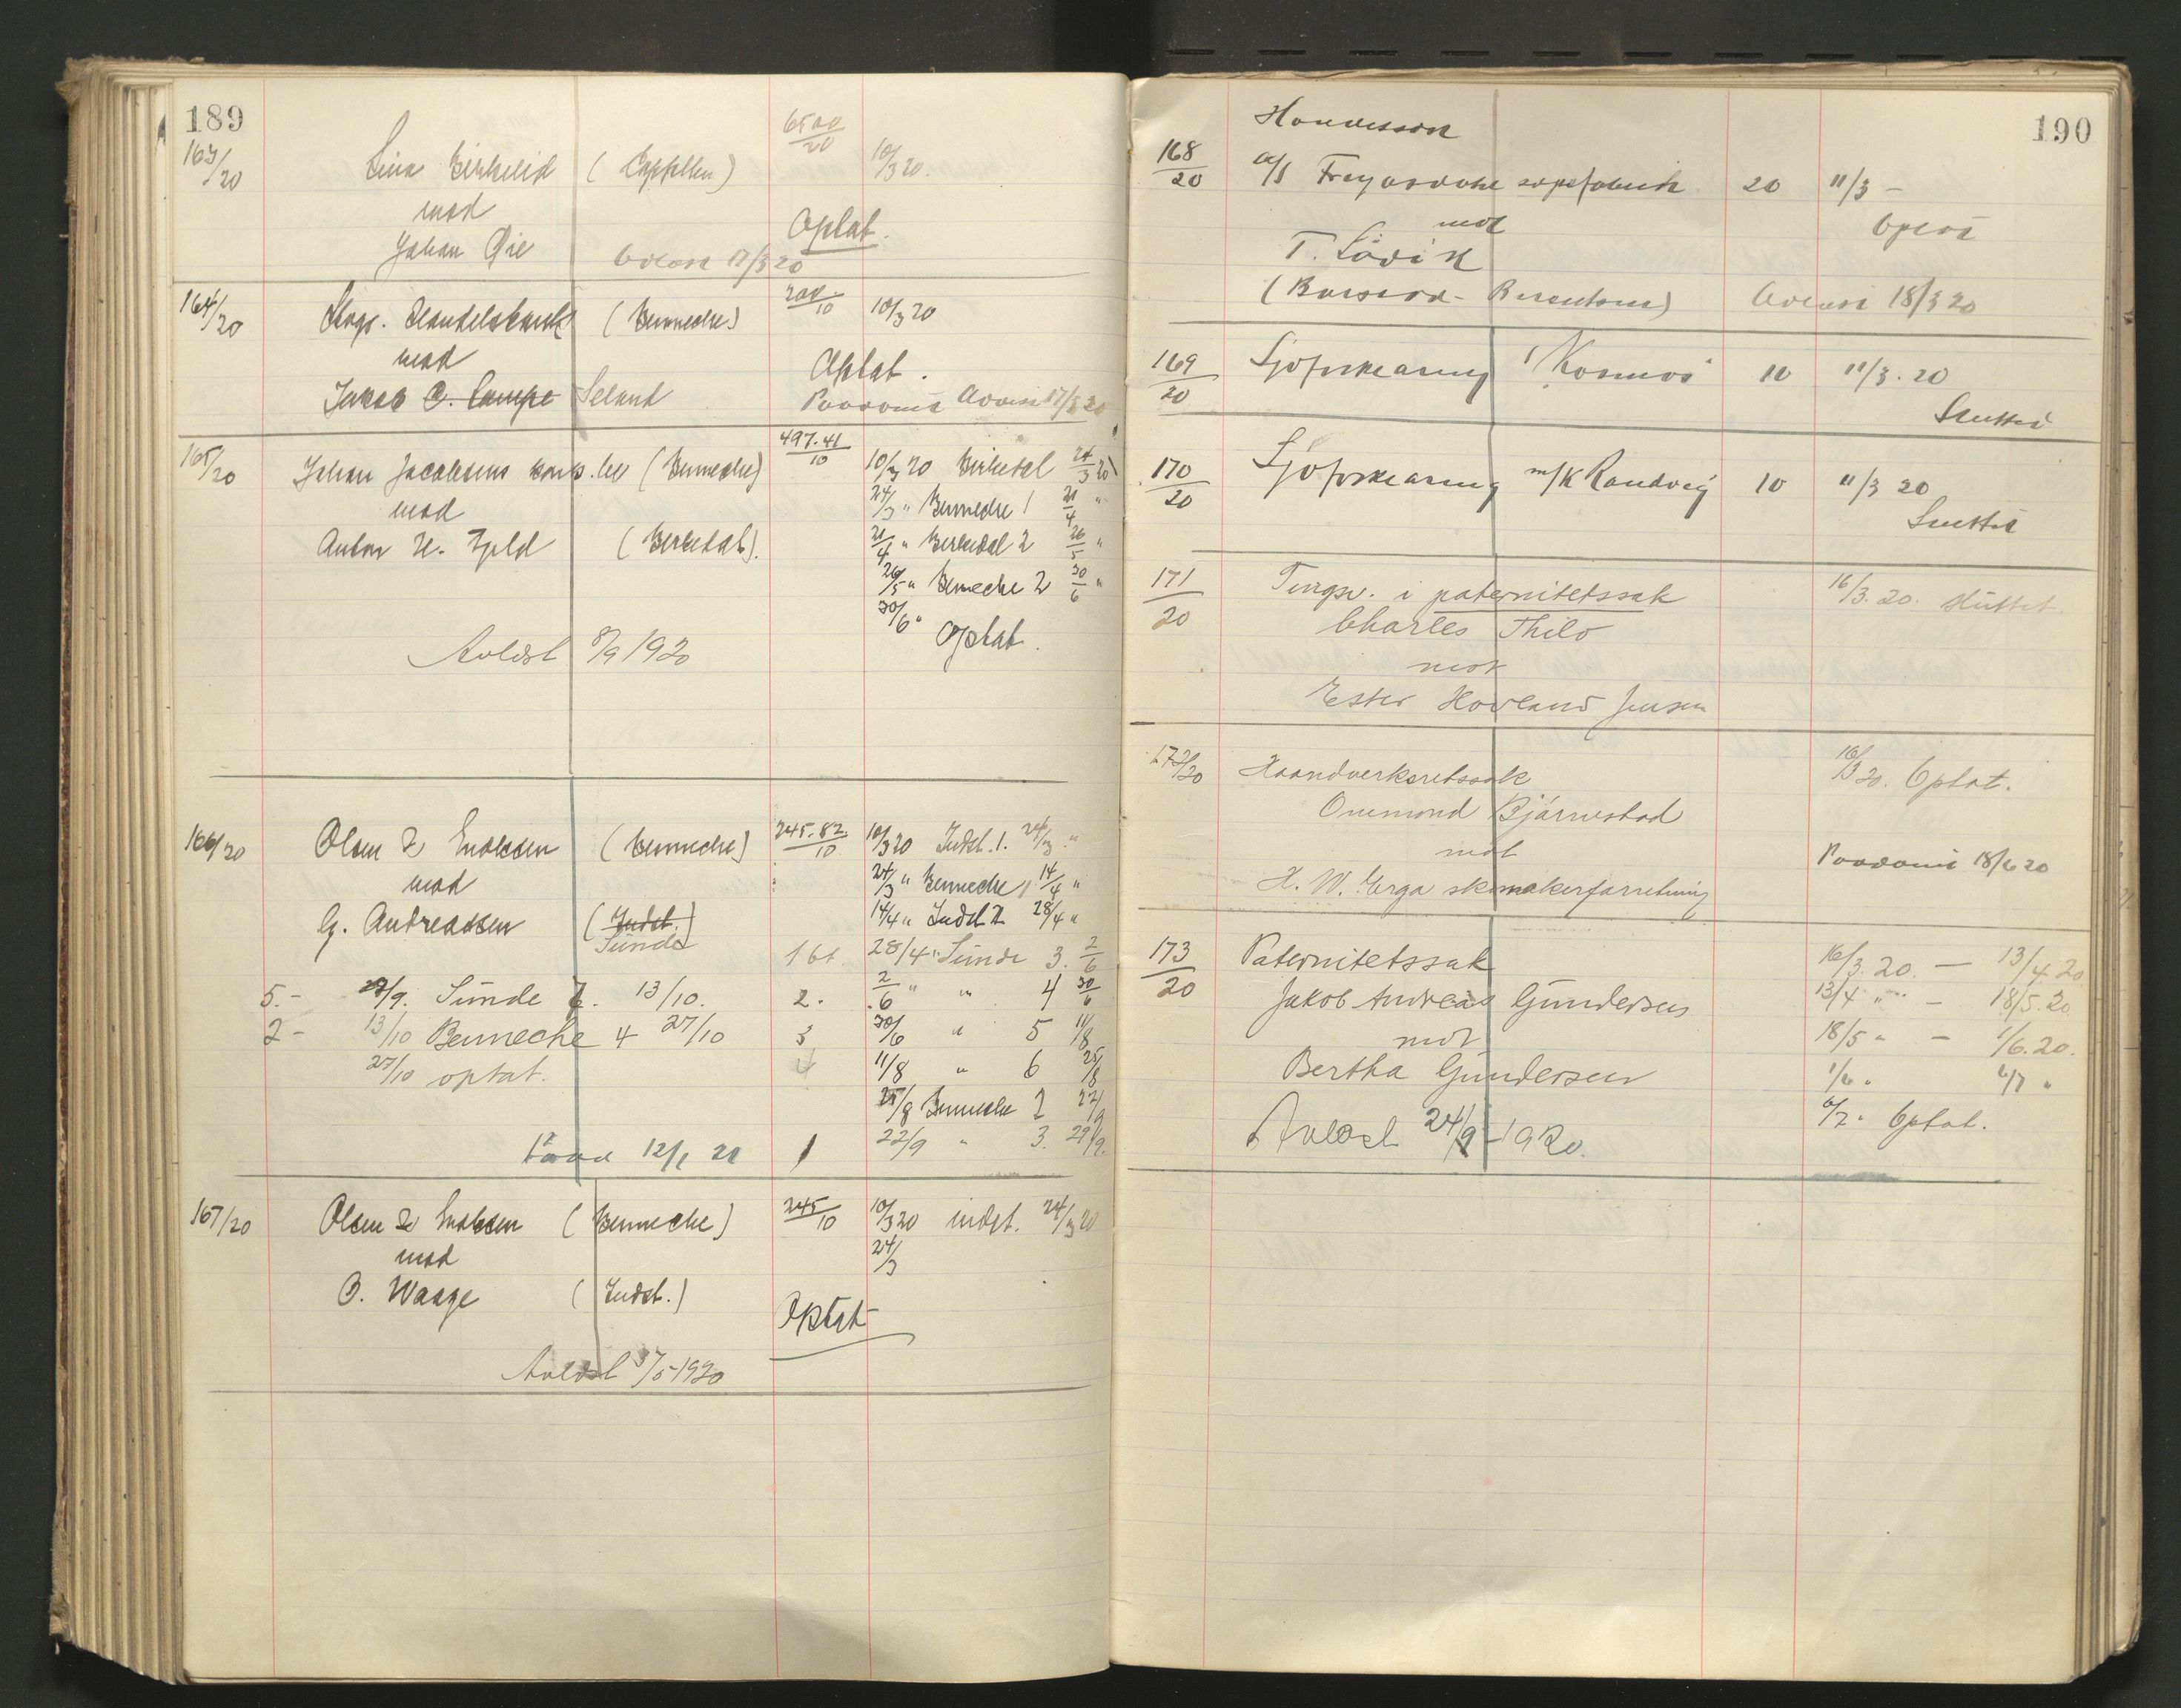 189
163/20 Lina Birkelid (Cappellen) 6500/20 10/3 20.
mod
Johan Øie Optat.
17/3 20
164/20 Stvgr. Handelsbank (Bennecke) 200.-/10 10/3 20
mod Optat.
Jakob C. Lampe Seland
165/20 Johan Jacobsens konk.bo (Bennecke) 497.41/10 10/3 20 Birkedal 24/3 20
mod 24/3 " Bennecke 1 21/4 "
Anton H. Tjeld (Birkedal). 21/4 " Birkedal 2 26/5 "
26/5 " Bennecke 2 30/6 "
30/6 "
Optat.
Avlæst 8/9 1920
166/20 Olsen & Enoksen (Bennecke) 245.82/10 10/3 20 Indst. 1. 24/3 "
mod 24/3 " Bennecke 1 14/4 "
G. Andreassen (Indst.) 14/4 " Indst 2 28/4 "
Sunde 1 bt. 28/4 " Sunde 3. 2/6
5.- 29/9. Sunde 7. 13/10. 2. 2/6 " " 4 30/6
2- 13/10 Bennecke 4 27/10 3 30/6 " 5 11/8
27/10 optat. 4 11/8 " 6 25/8
25/8 Bennecke 2 22/9
12/1 21 1 22/9 " 3. 29/9.
167/20 Olsen & Enoksen (Bennecke) 245/10 10/3 20 indst. 24/3 20
mod 24/3
O. Waage (Indst.)
Optat
Avlæst 3/5-1920
190
Handelssak
168/20 a/s Freyasdahl sæpefabrik 20 11/3 -
mot Optat
T. Lövik
18/3 20
169/20 Sjøforklaring "Kosmos" 10 11/3. 20
Sluttet
170/20 Sjøforklaring m/k Randveig 10 11/3 20
Sluttet
171/20 Tingsv. i paternitetssak 16/3. 20. sluttet.
Charles Thilo
mot
Ester Hovland Jensen
172/20 Haandverksretssak 16/3 20. Optat.
Onemund Bjärnestad
mot
H. W. Erga skomakerforretning
173/20 Paternitetssak 16/3. 20. - 13/4. 20
Jakob Andreas Gundersen 13/4 " - 18/5. 20
mot 18/5 " - 1/6. 20.
Bertha Gundersen 1/6 " 6/7 "
6/7 " Optat.
Avlæst 24/9-1920.